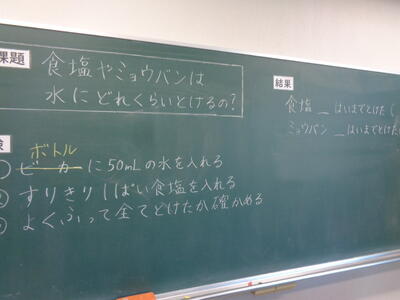 課題
食塩やミョウバンは
水にどれくらいとけるの?
ボトル
ビーカーに50mLの水を入れる
すりきり1ぱい食塩を入れる
よくふって全てとけたか確かめる
結果
食塩 __ はいまでとけた (
ミョウバン __ はいまでとけた